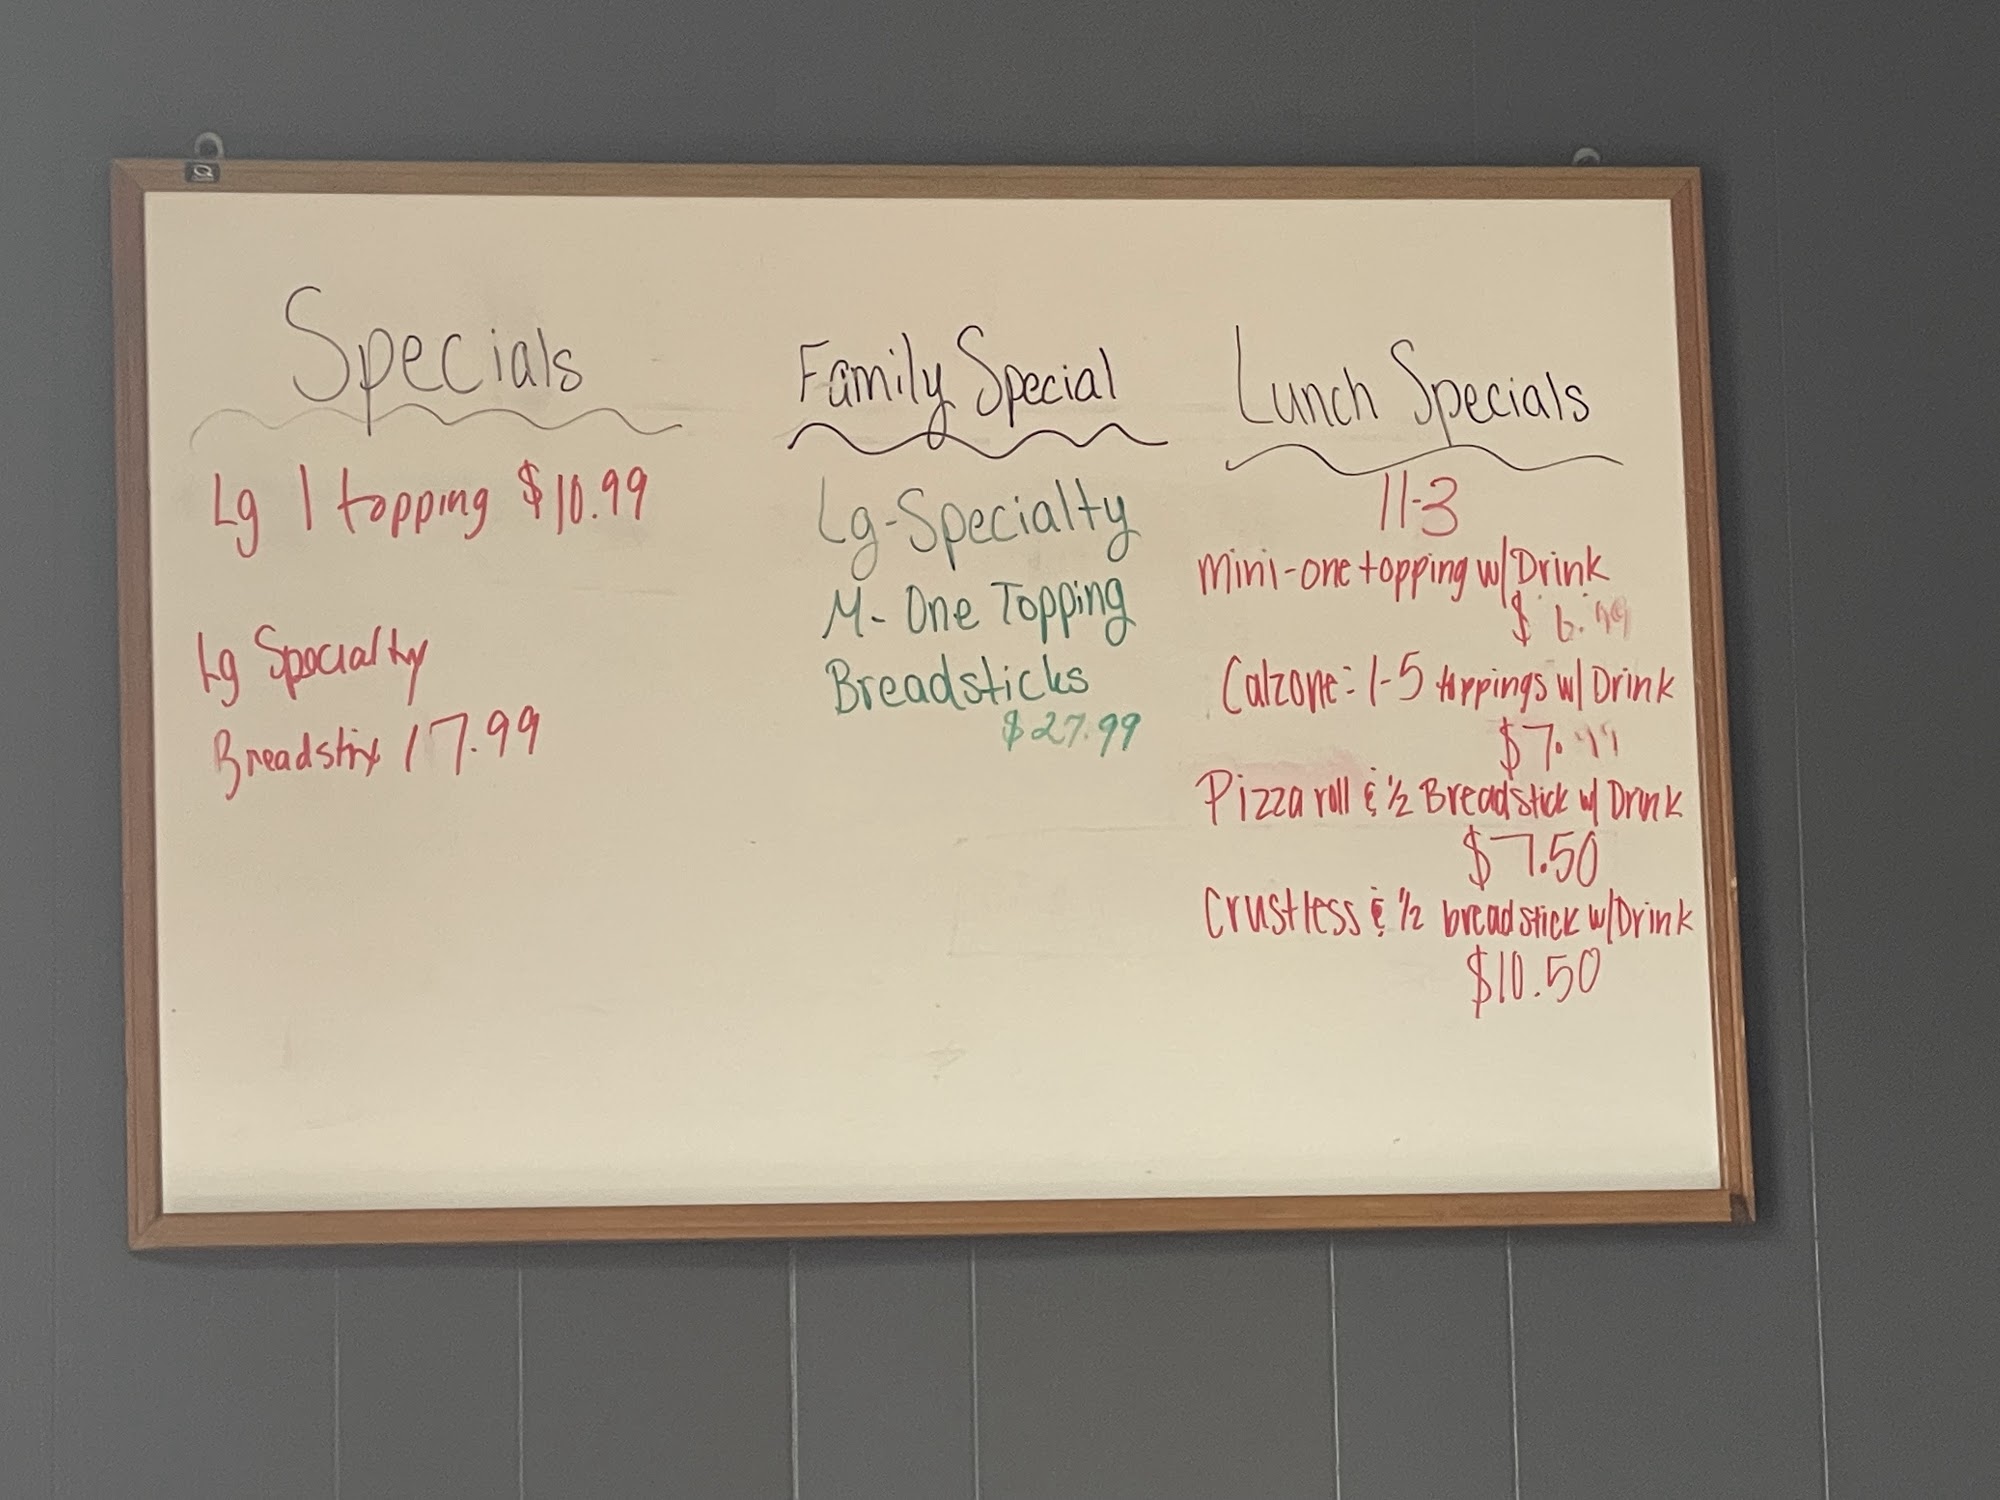 Specials
Lg 1 topping $10.99
Lg Specialty
Breadstix 17.99
Family Special
Lg-Specialty
M- One Topping
Breadsticks
$27.99
Lunch Specials
11-3
Mini-one topping w/Drink
$6.99
Calzone: 1-5 toppings w/ Drink
$7.99
Pizza roll & 1/2 Breadstick w/ Drink
$7.50
Crustless & 1/2 breadstick w/Drink
$10.50